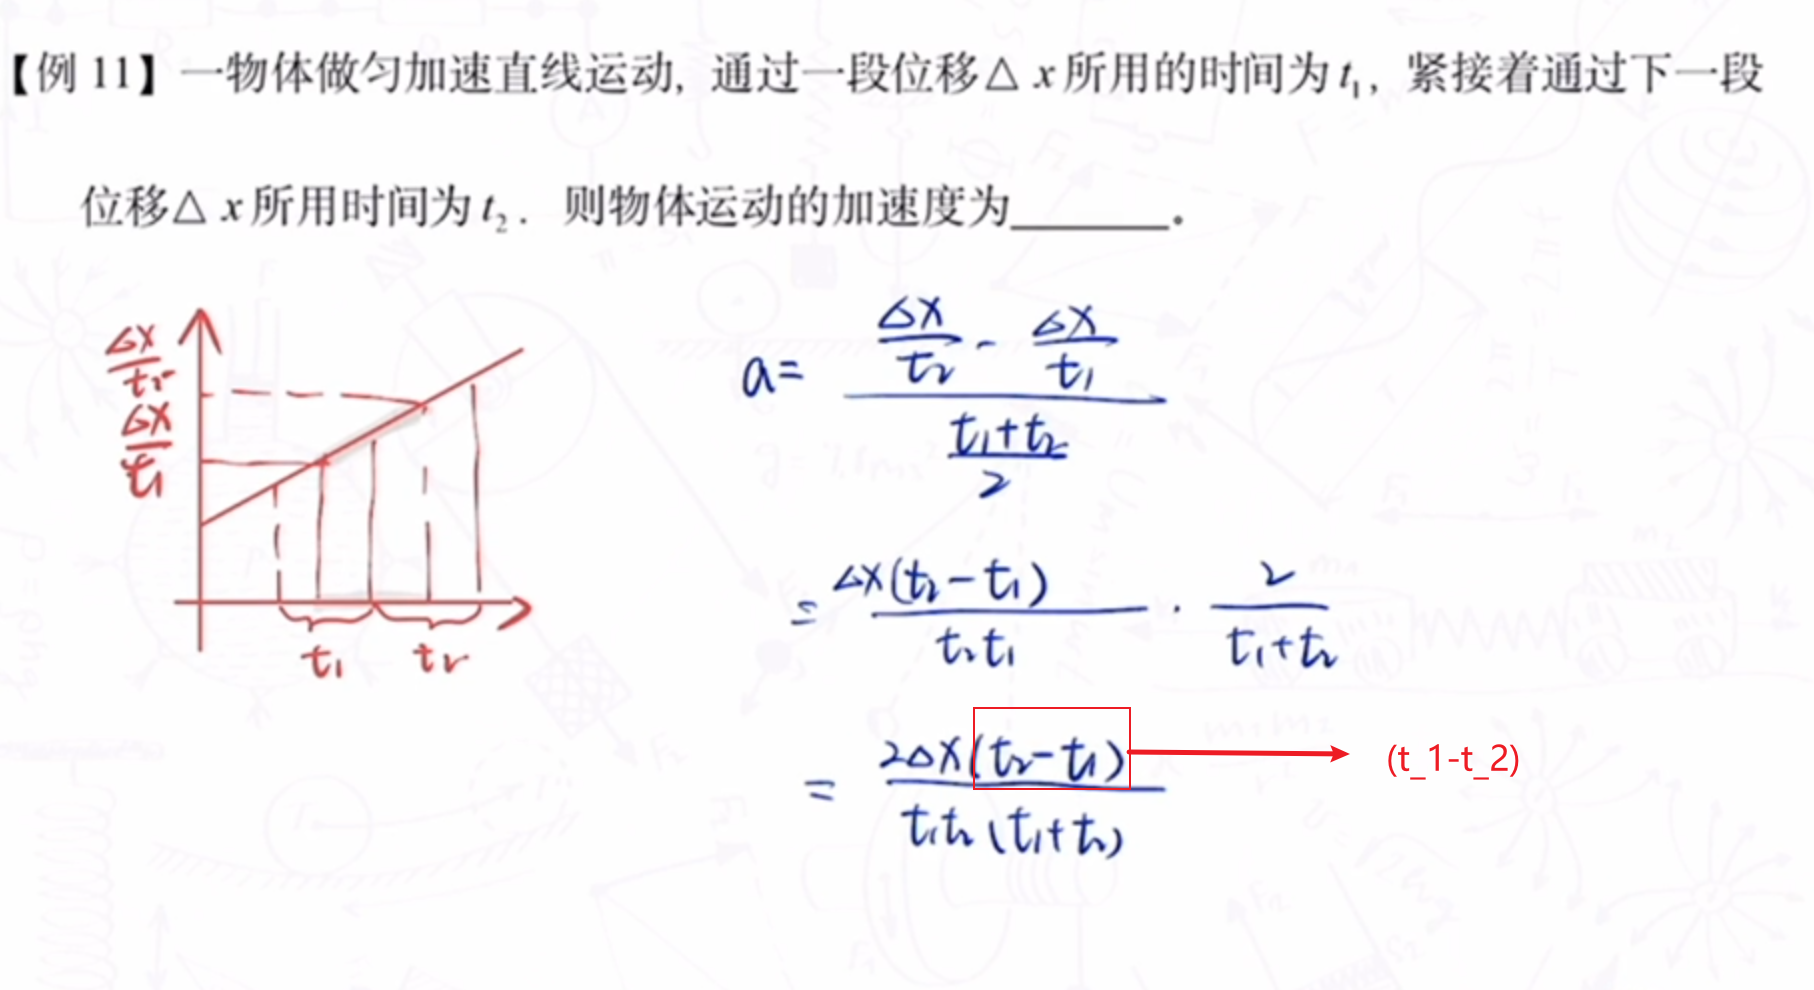 【例 11】一物体做匀加速直线运动, 通过一段位移△ x 所用的时间为 t₁, 紧接着通过下一段
位移△ x 所用时间为 t₂. 则物体运动的加速度为______。
Δx/t₂
Δx/t₁
t₁ t₂
a = (Δx/t₂ - Δx/t₁) / ((t₁+t₂)/2)
= Δx(t₂-t₁)/(t₂t₁) · 2/(t₁+t₂)
= 2Δx(t₂-t₁)/(t₁t₂(t₁+t₂))
(t_1-t_2)